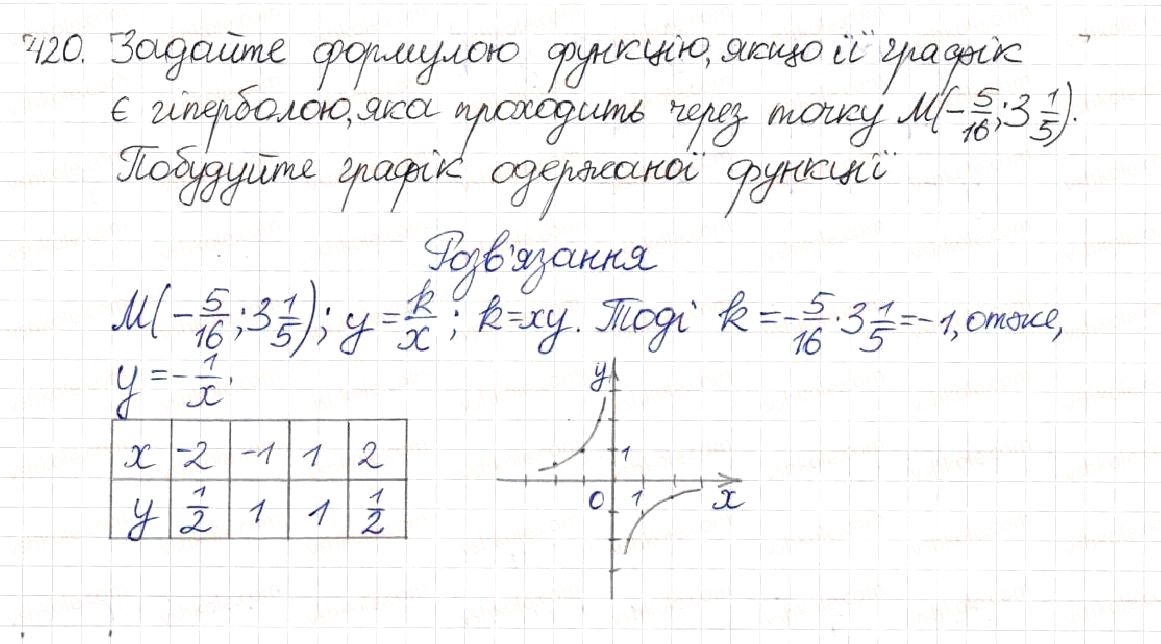 420. Задайте формулою функцію, якщо її графік
є гіперболою, яка проходить через точку M(-5/16; 3 1/5).
Побудуйте графік одержаної функції
Розв'язання
M(-5/16; 3 1/5); y = k/x; k=xy. Тоді k = -5/16 · 3 1/5 = -1, отже,
y = -1/x.
x -2 -1 1 2
y 1/2 1 1 1/2
y
1
0 1 x